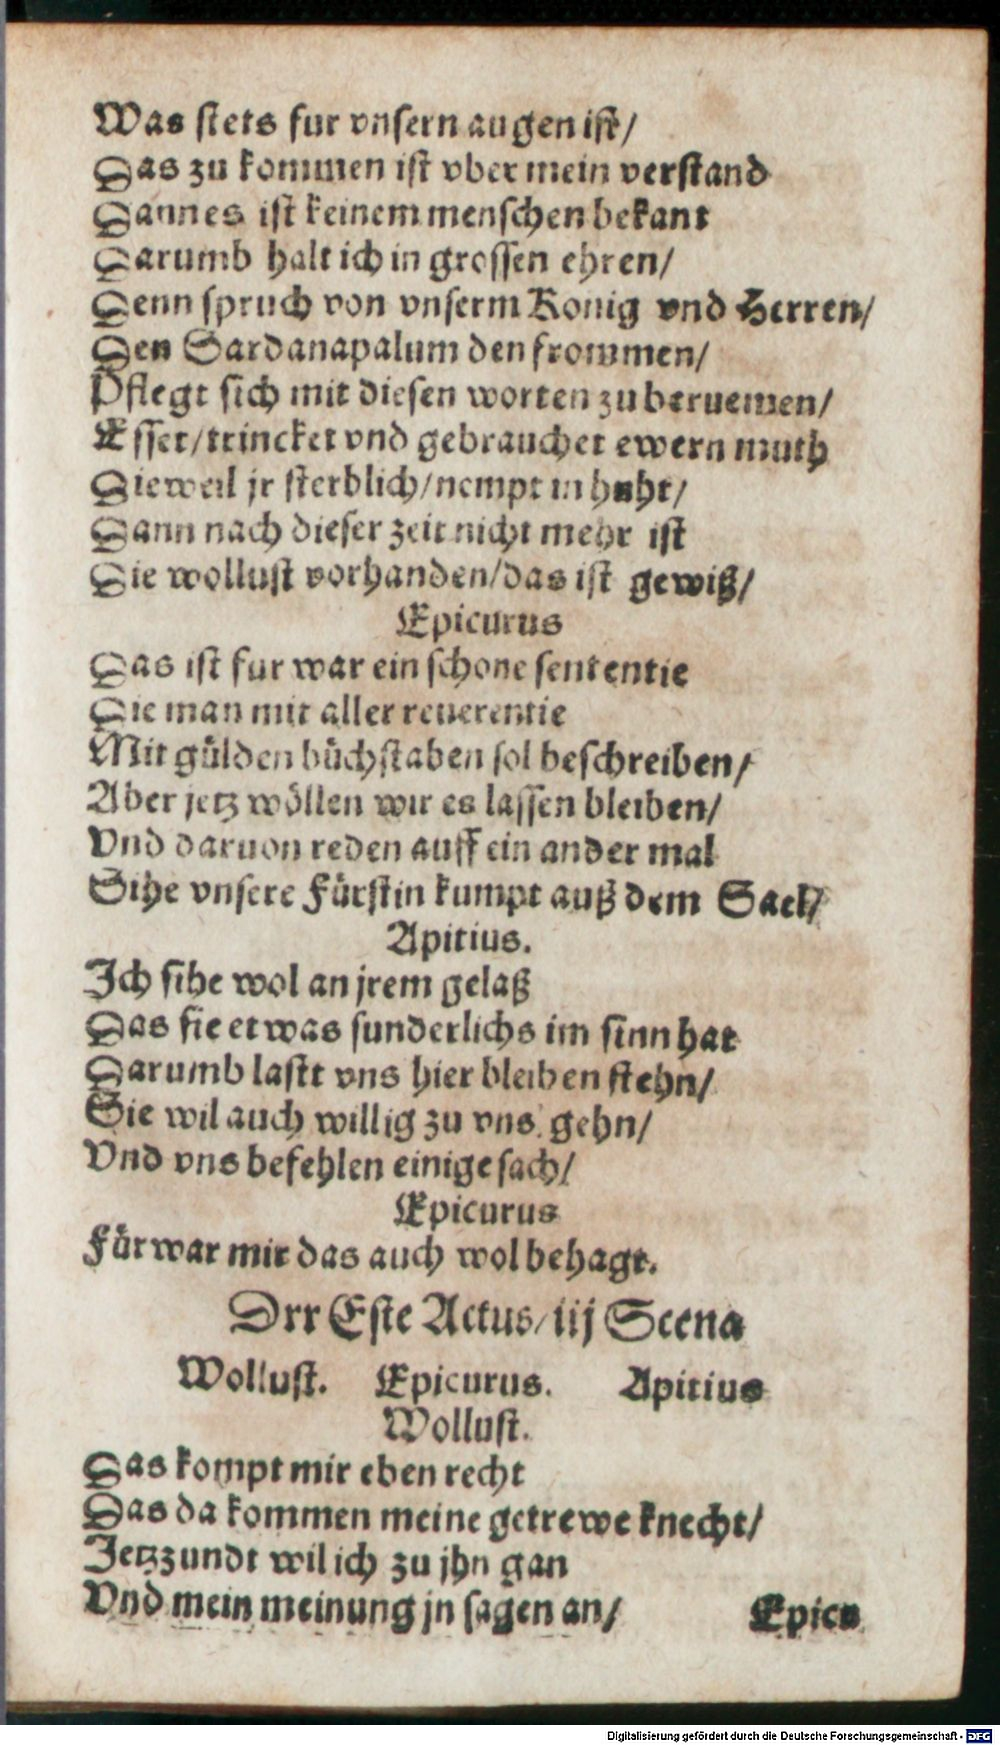 Was stets fur vnsern augen ist/
Das zu kommen ist vber mein verstand
Dann es ist keinem menschen bekant
Darumb halt ich in grossen ehren/
Denn spruch von vnserm Konig vnd Herren/
Den Sardanapalum den frommen/
Pflegt sich mit diesen worten zu beruemen/
Esset/trincket vnd gebrauchet ewern muth
Dieweil jr sterblich/nempt in huht/
Dann nach dieser zeit nicht mehr ist
Die wollust vorhanden/das ist gewiß/
Epicurus
Das ist fur war ein schone sententie
Die man mit aller reuerentie
Mit gülden büchstaben sol beschreiben/
Aber jetz wöllen wir es lassen bleiben/
Vnd daruon reden auff ein ander mal
Sihe vnsere Fürstin kumpt auß dem Sael/
Apitius.
Ich sihe wol an jrem gelaß
Das sie etwas sunderlichs im sinn hat
Darumb lastt vns hier bleiben stehn/
Sie wil auch willig zu vns gehn/
Vnd vns befehlen einige sach/
Epicurus
Fürwar mir das auch wol behagt.
Drr Este Actus/iij Scena
Wollust. Epicurus. Apitius
Wollust.
Das kompt mir eben recht
Das da kommen meine getrewe knecht/
Jetzzundt wil ich zu jhn gan
Vnd mein meinung jn sagen an/
Epicu
Digitalisierung gefördert durch die Deutsche Forschungsgemeinschaft - DFG